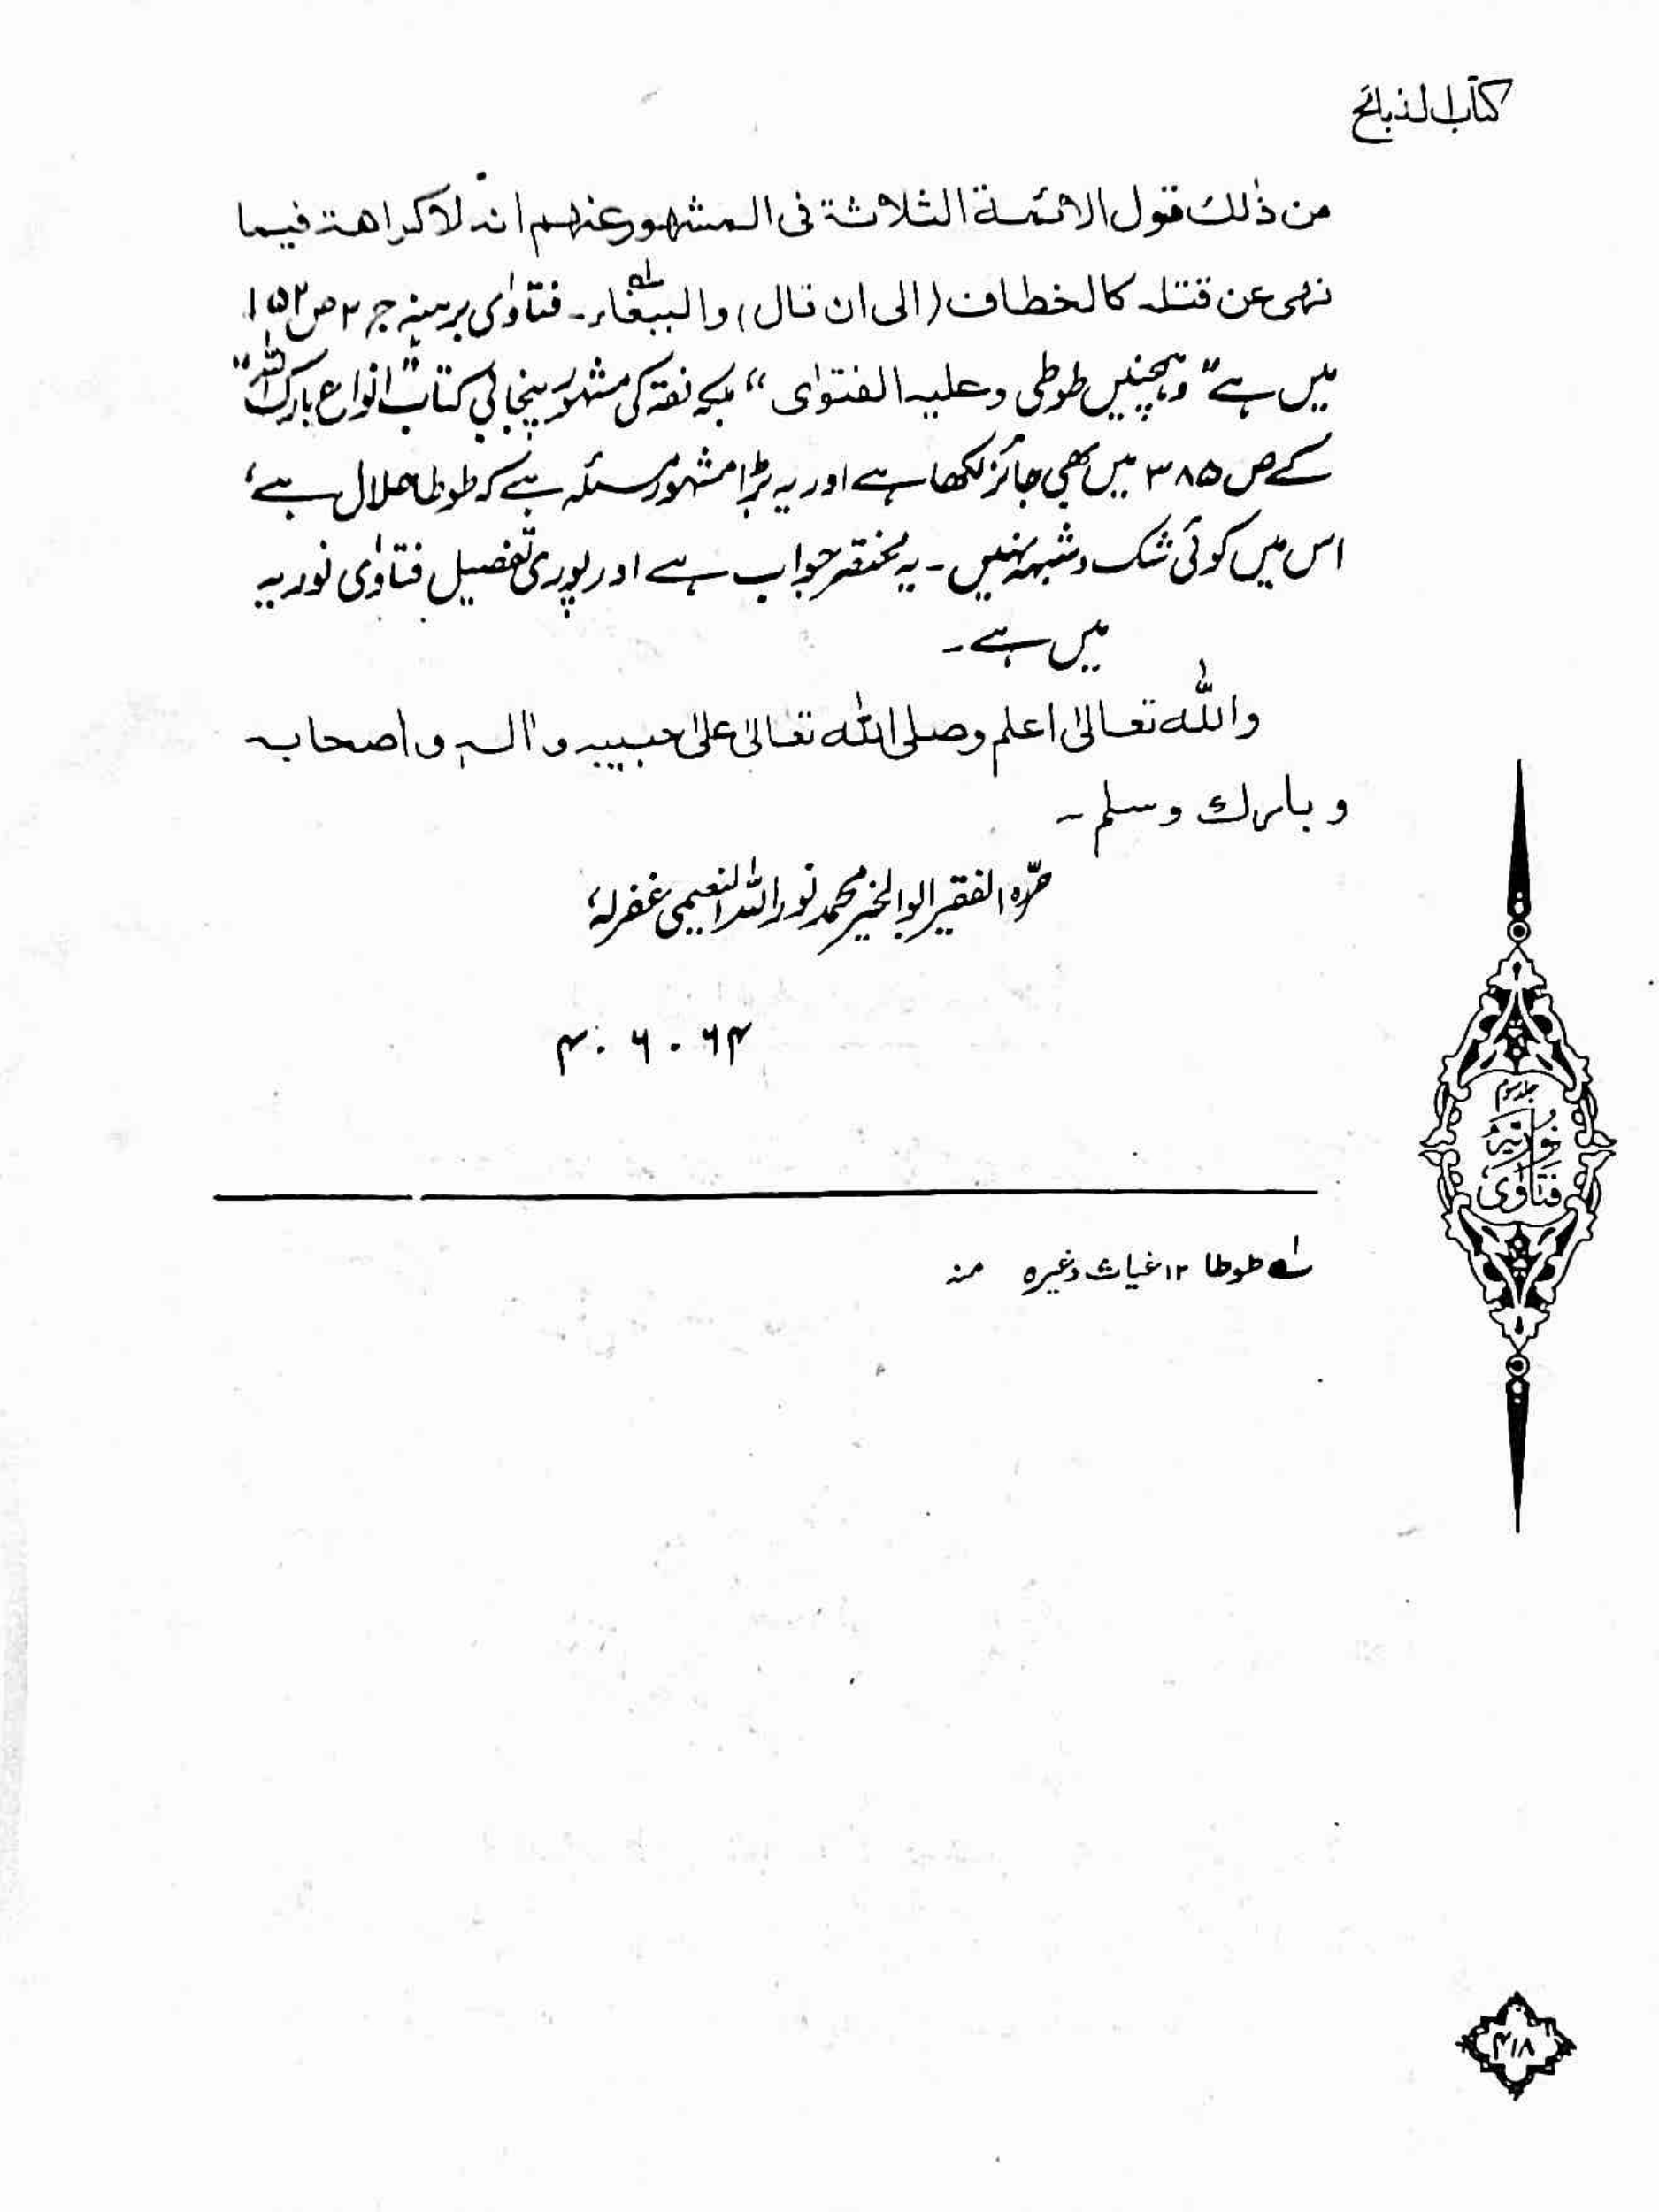 کتاب الذبائح
من ذٰلك قول الائمة الثلاثة فى المشهور عنهم انه لا كراهة فيما
نهى عن قتله كالخطاف (الى ان قال) والببغاء لہ۔ فتاوٰی برہنہ ج ۲ ص ۱۵۲
میں ہے "وہمچنیں طوطی وعلیہ الفتوٰی" بلکہ فقہ کی مشہور پنجابی کتاب "انواع بارک اللہ"
کے ص ۳۸۵ میں بھی جائز لکھا ہے اور یہ بڑا مشہور مسئلہ ہے کہ طوطا حلال ہے،
اس میں کوئی شک وشبہہ نہیں۔ یہ مختصر جواب ہے اور پوری تفصیل فتاوٰی نوریہ
میں ہے۔
والله تعالیٰ اعلم وصلی الله تعالیٰ علیٰ حبیبه واٰله واصحابه
وبارك وسلم۔
حرّرہ الفقیر ابوالخیر محمد نور اللہ النعیمی غفرلہٗ
۴۔۶۔۶۴
جلد سوم
نُوریّہ
فتاوٰی
لہ طوطا ۱۲ غیاث وغیرہ منہ
۴۱۸